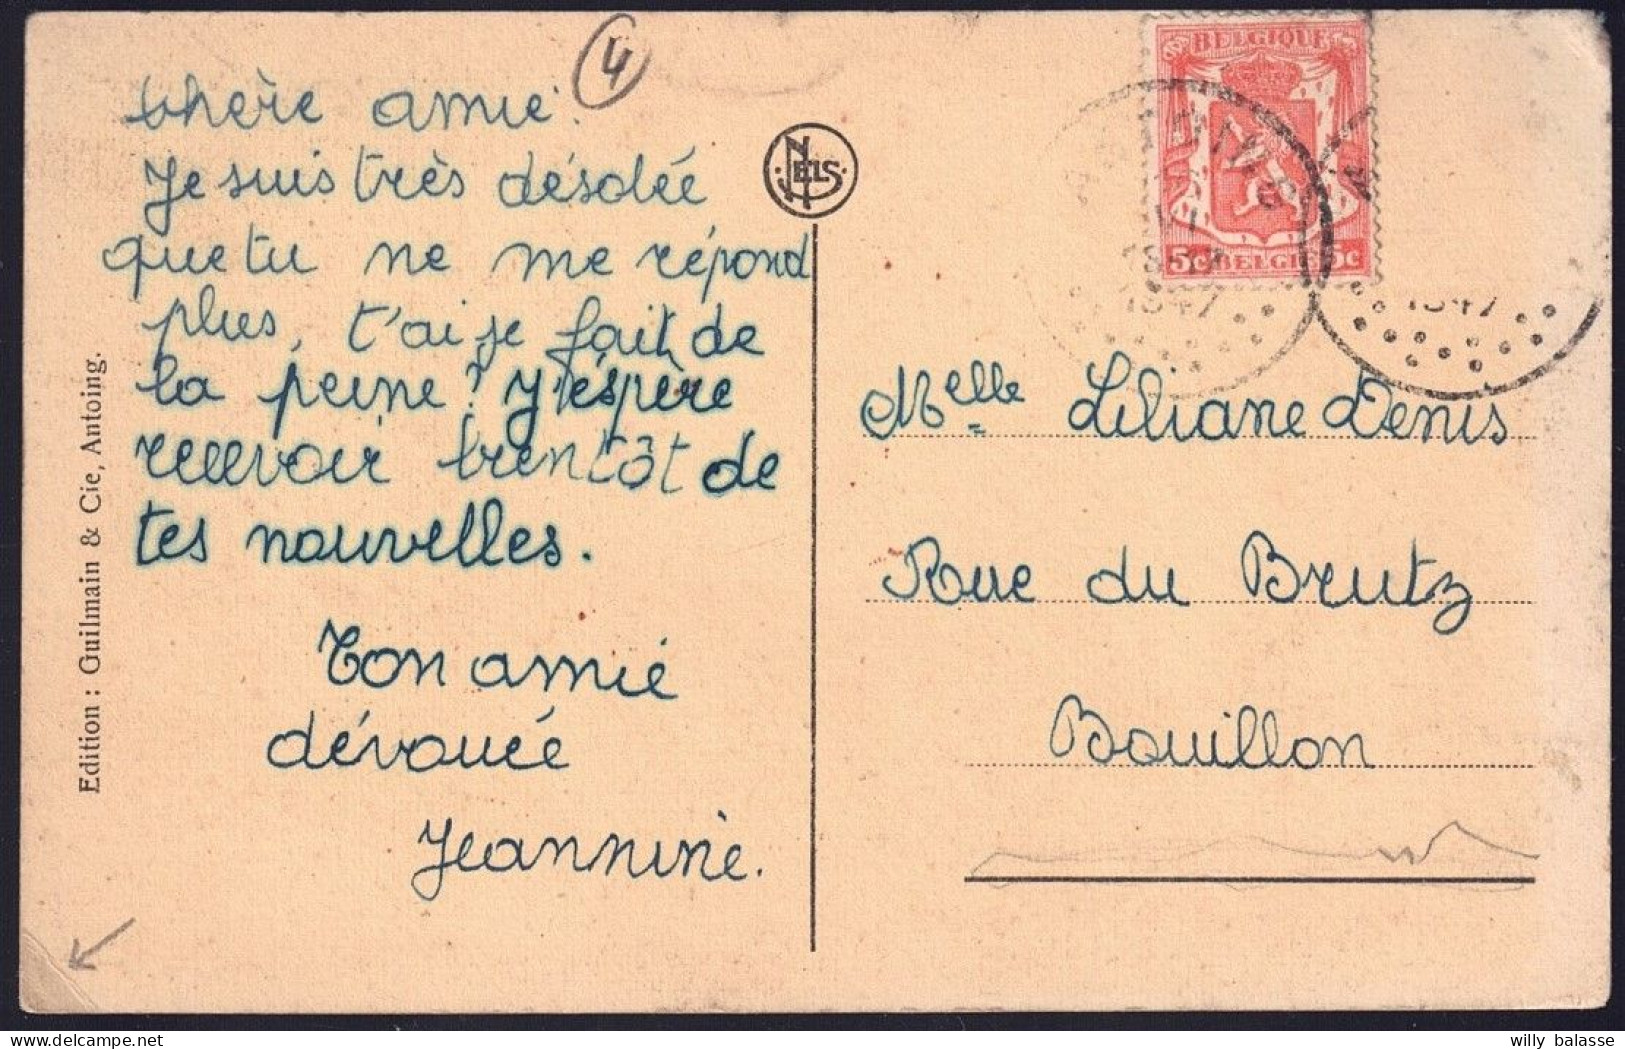 4
Chère amie.
Je suis très désolée
que tu ne me répond
plus, t'ai je fait de
la peine? J'éspère
recevoir bientôt de
tes nouvelles.
Ton amie
dévouée
Jeannine.
Edition : Guilmain & Cie, Antoing.
NELS
BELGIQUE
5c BELGIE 5c
1947
1947
Melle Liliane Denis
Rue du Brutz
Bouillon
willy balasse